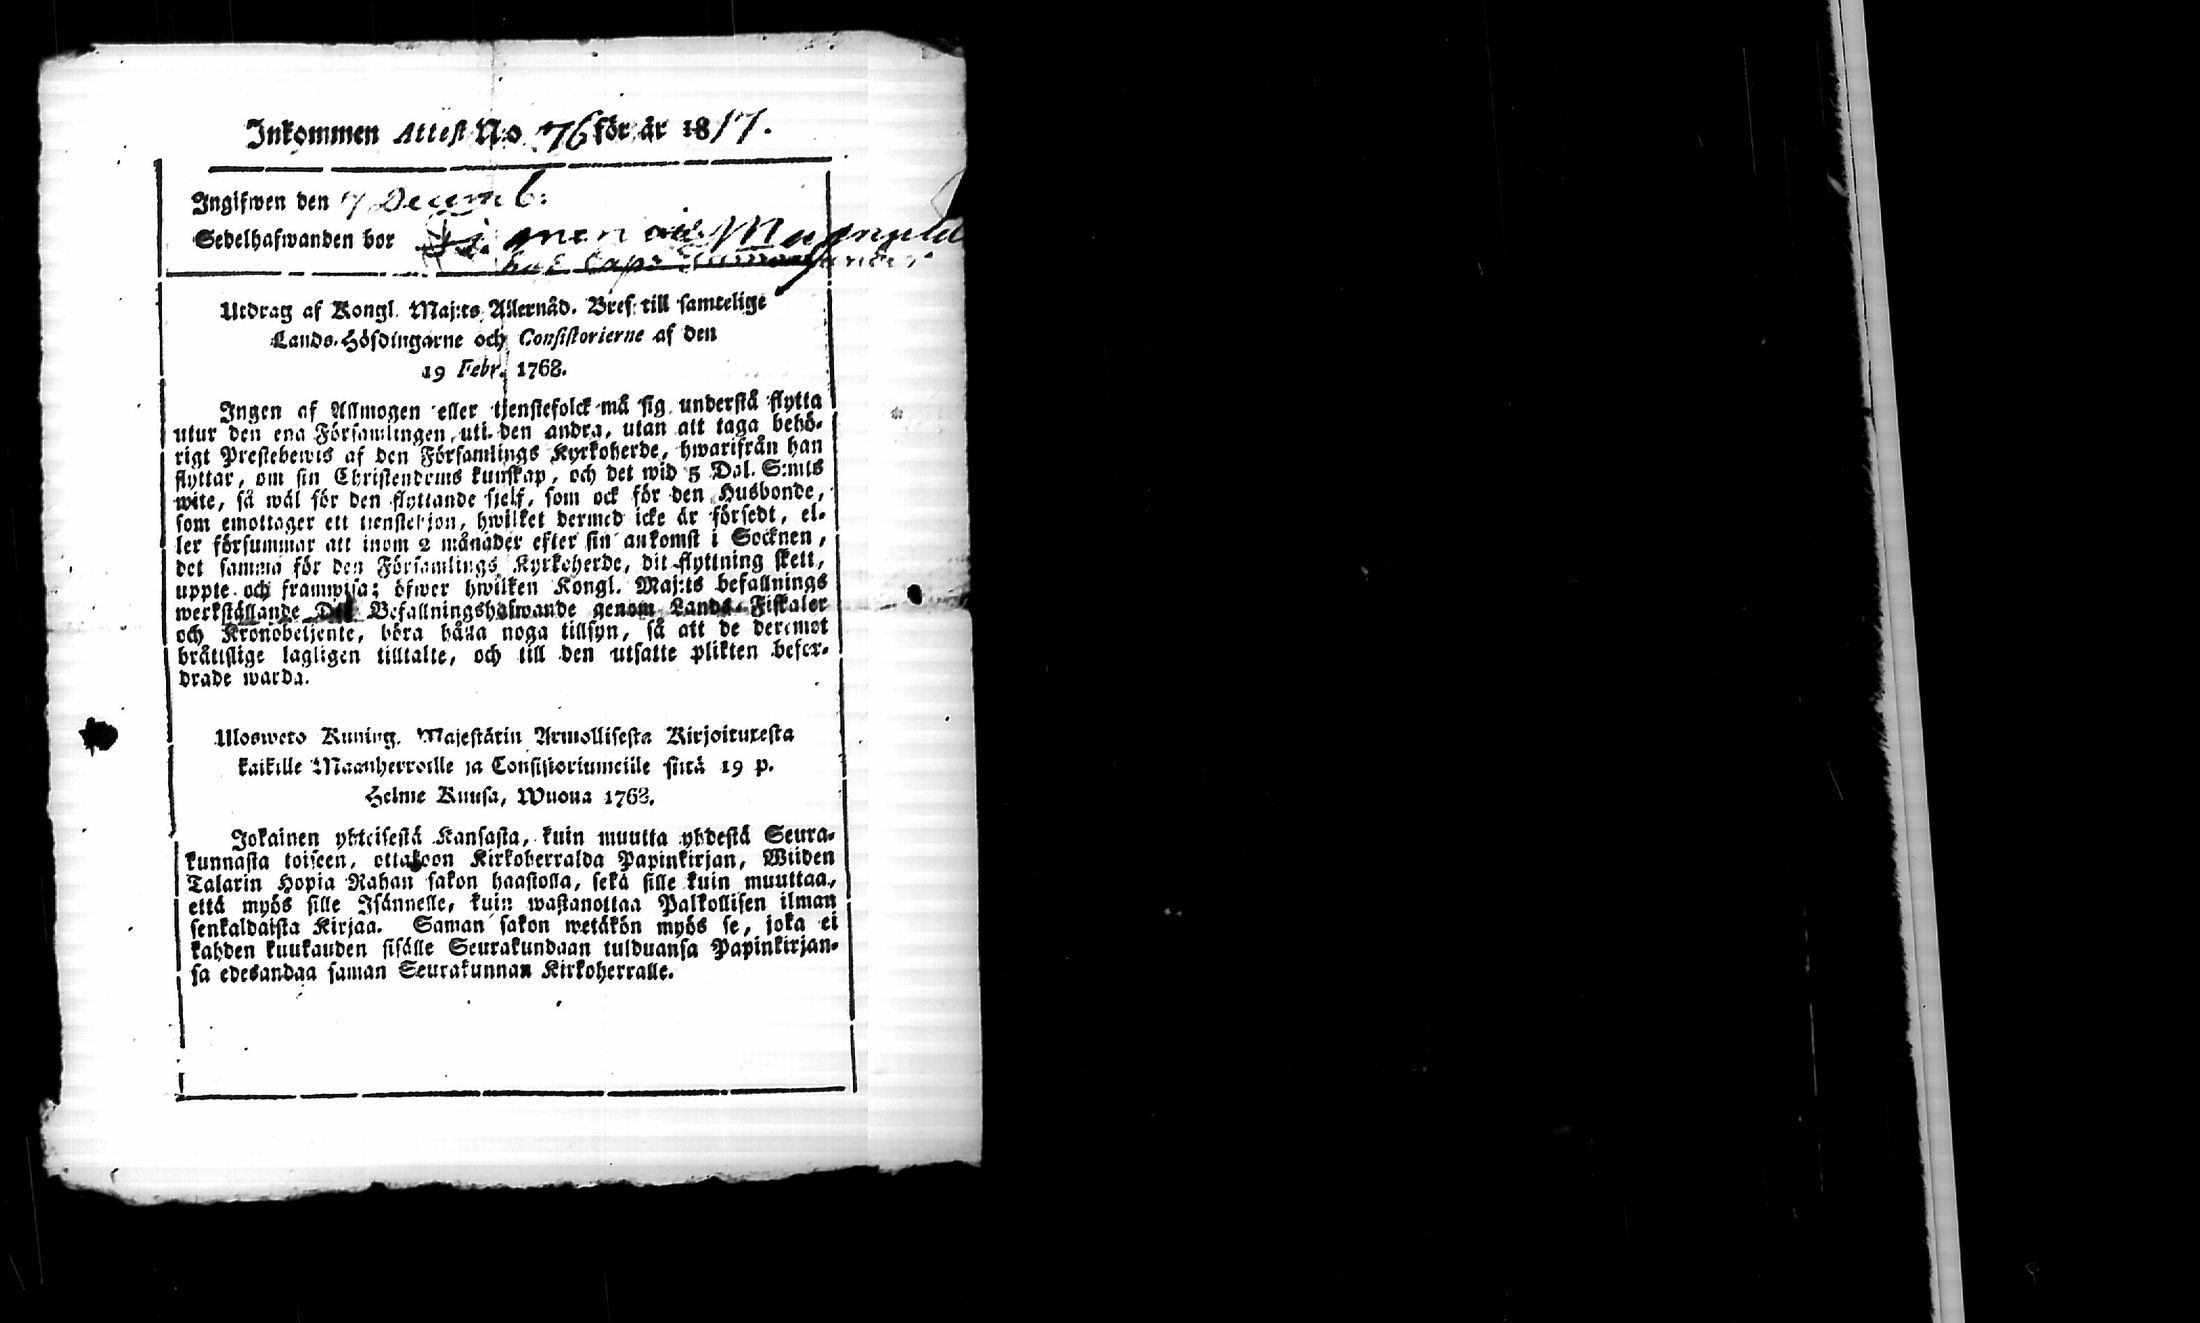 Inkommen Attest No 76 för år 1817.
Ingifwen den 7 Decemb:
Sedelhafwanden bor
Utdrag af Kongl. Maj:ts Allernåd. Bref till samtelige
Lands-Höfdingarne och Consistorierne af den
19 Febr. 1768.
Ingen af Allmogen eller tjenstefolck må sig understå flytta
utur den ena Församlingen uti den andra, utan att taga behö-
rigt Prestebewis af den Församlings Kyrkoherde, hwarifrån han
flyttar, om sin Christendoms kunskap, och det wid 5 Dal. S:mts
wite, så wäl för den flyttande sjelf, som ock för den Husbonde,
som emottager ett tienstehjon, hwilket dermed icke är försedt, el-
ler försummar att inom 2 månader efter sin ankomst i Socknen,
det samma för den Församlings Kyrkoherde, dit flyttning skett,
uppte och framwisa; öfwer hwilken Kongl. Maj:ts befallnings
werkställande Dess Befallningshafwande genom Lands-Fiskaler
och Kronobetjente, böra hålla noga tillsyn, så att de deremot
bråttslige lagligen tilltalte, och till den utsatte plikten befor-
drade warda.
Ulosweto Kuning. Majestätin Armollisesta Kirjoituxesta
kaikille Maanherroille ja Consistoriumeille siitä 19 p.
Helme Kuusa, Wuona 1768.
Jokainen yhteisestä Kansasta, kuin muutta yhdestä Seura-
kunnasta toiseen, ottakoon Kirkoherralda Papinkirjan, Wiiden
Talarin Hopia Rahan sakon haastolla, sekä sille kuin muuttaa,
että myös sille Isännelle, kuin wastanottaa Palkollisen ilman
senkaldaista Kirjaa. Saman sakon wetäkön myös se, joka ei
kahden kuukauden sisälle Seurakundaan tulduansa Papinkirjan-
sa edesandaa saman Seurakunnan Kirkoherralle.